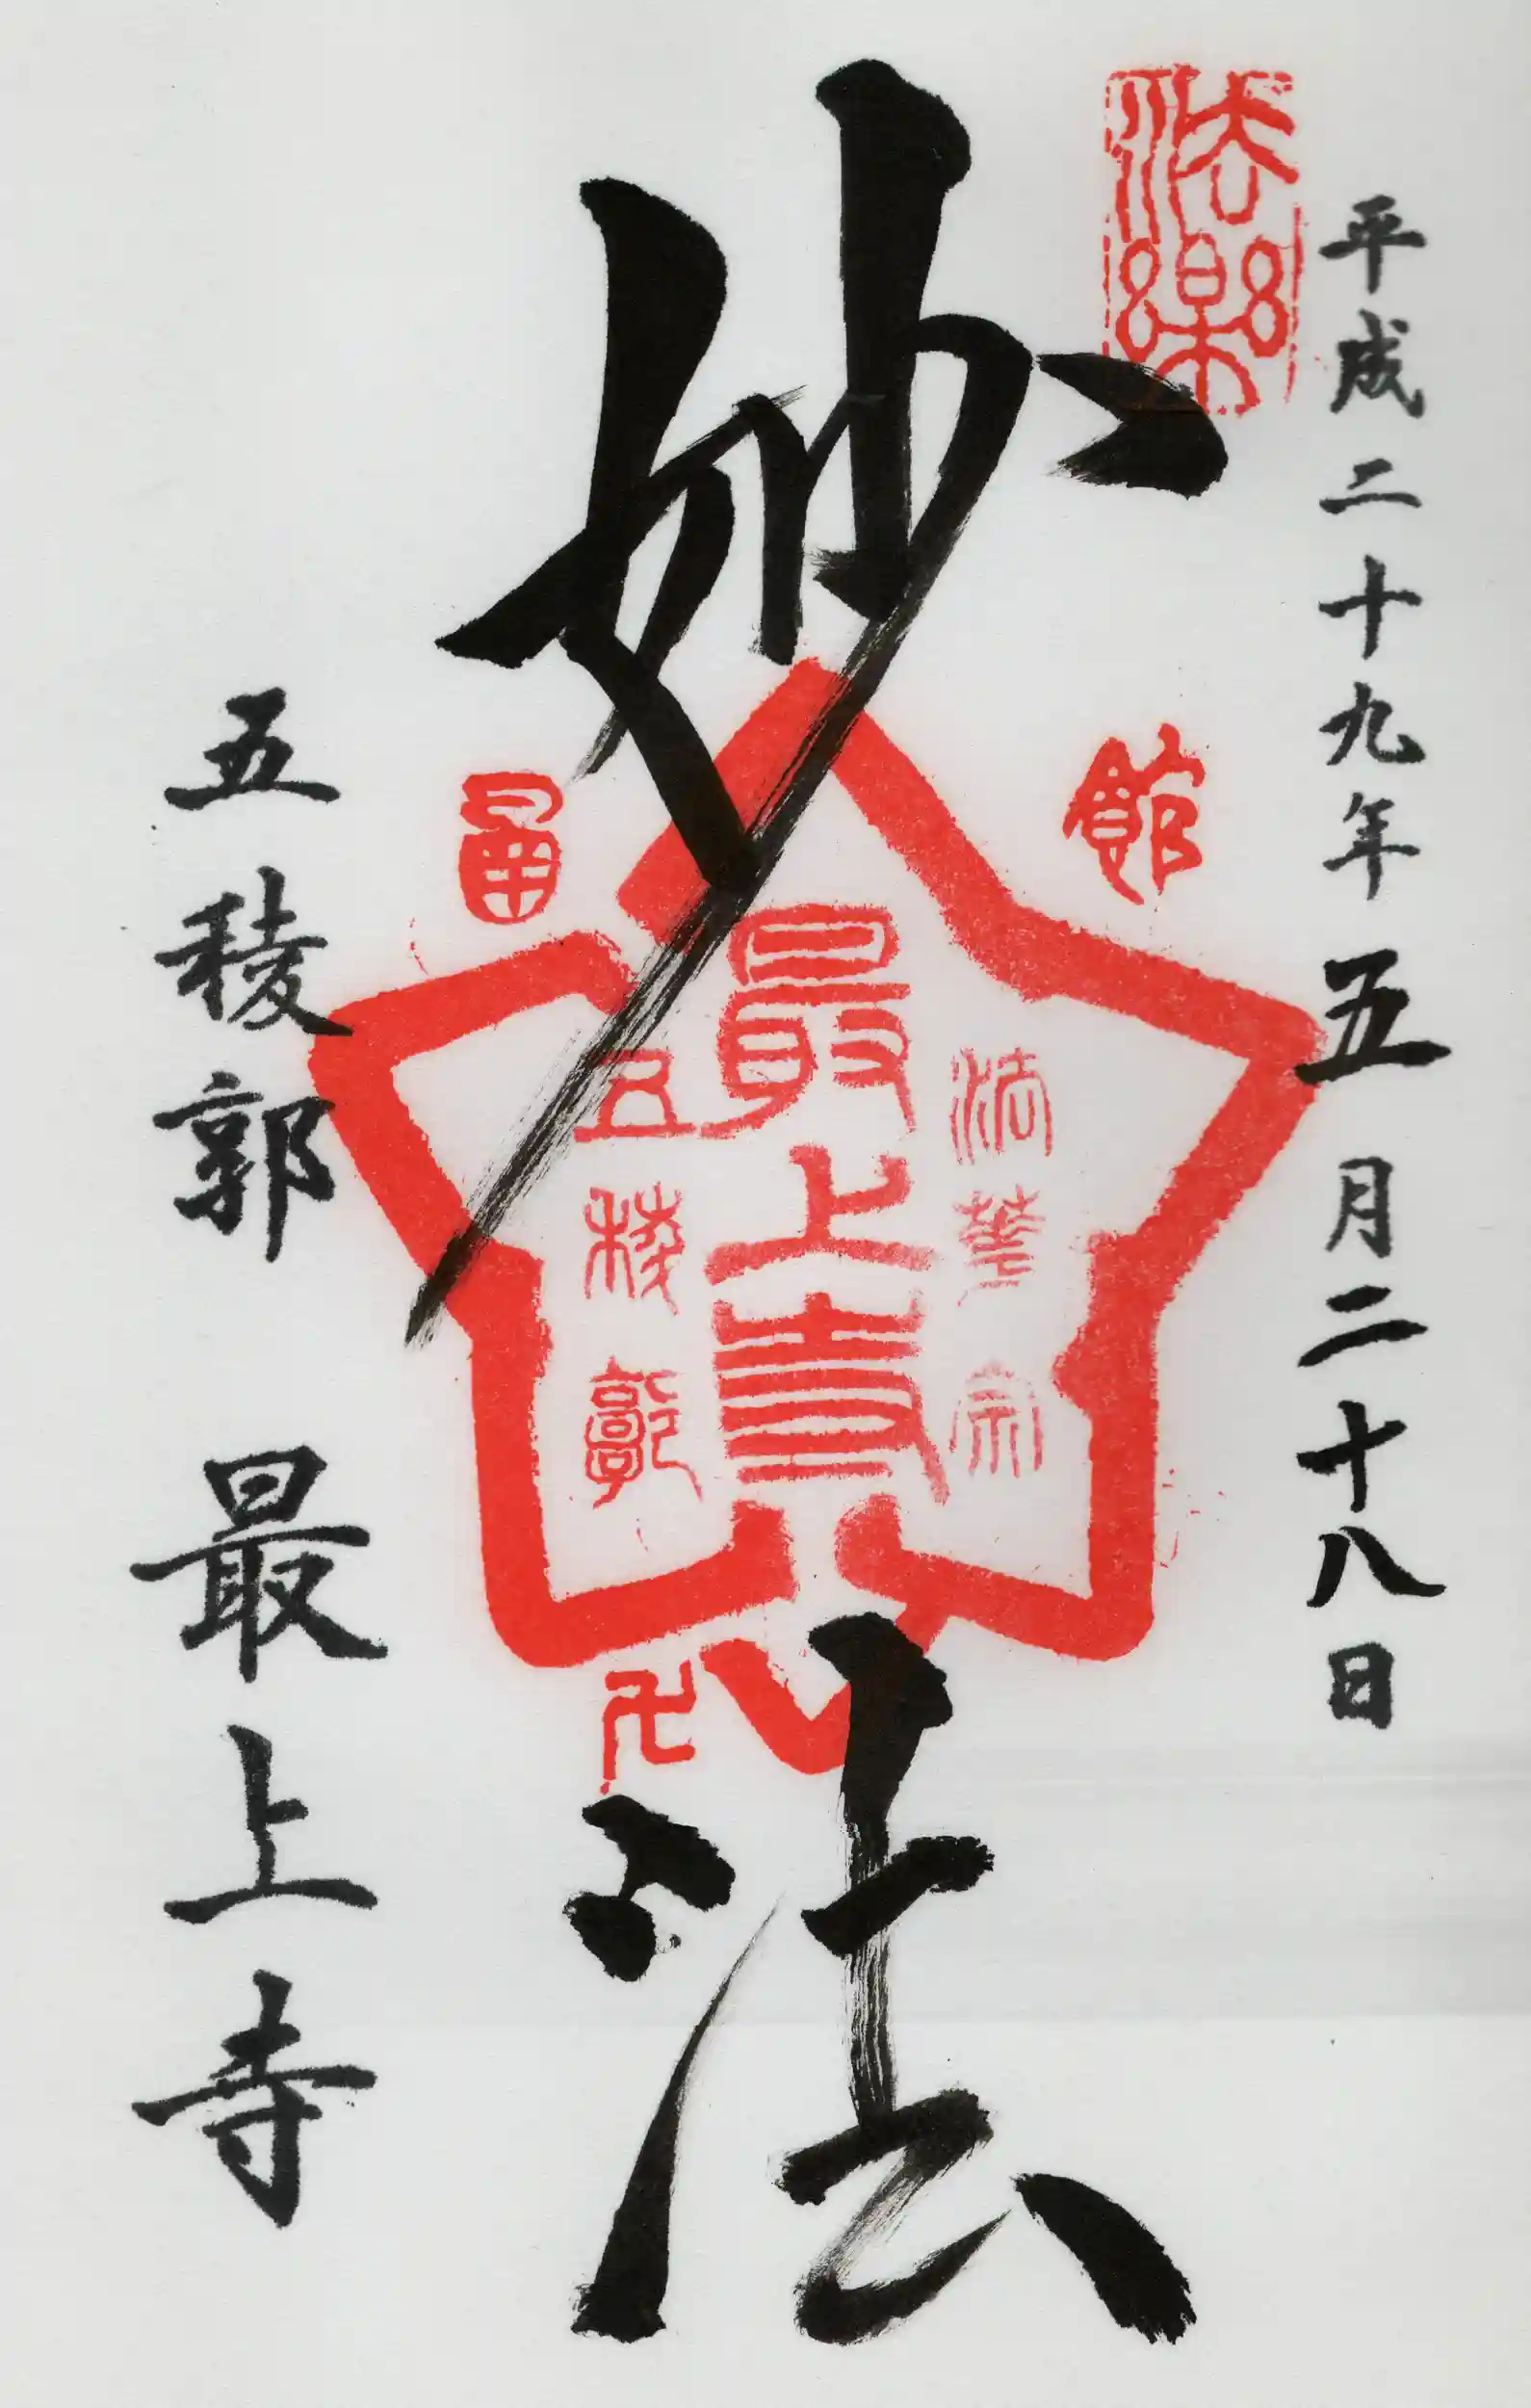 平成二十九年五月二十八日
法楽
妙法
館
函
法華宗
最上寺
五稜郭
卍
五稜郭 最上寺